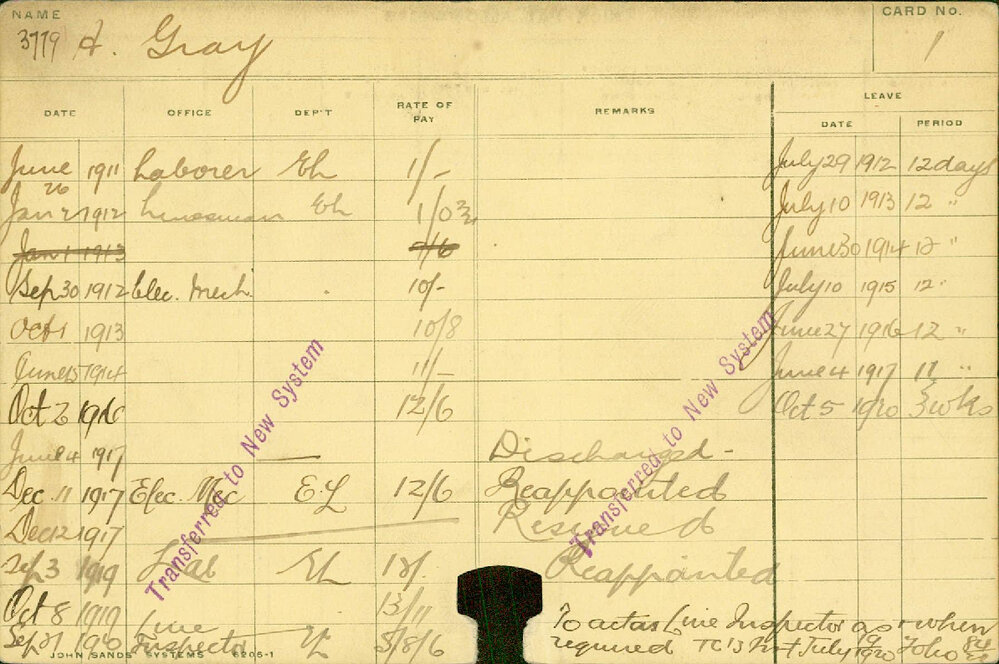 NAME
CARD No.
3779 A. Gray
1
DATE OFFICE DEP'T RATE OF PAY REMARKS LEAVE
DATE PERIOD
June 1911 Laborer EL 1/- July 29 1912 12 days
Jan 1912 Linesman EL 1/0¾ July 10 1913 12 "
Jan 1 1913 9/6 June 30 1914 12 "
Sep 30 1912 Elec. Mech. 10/- July 10 1915 12 "
Oct 1 1913 10/8 June 27 1916 12 "
June 1914 11/- June 4 1917 11 "
Oct 2 1916 12/6 Oct 5 1920 3 wks
June 4 1917 Discharged -
Dec. 11 1917 Elec. Mec E.L 12/6 Reappointed
Dec 12 1917 Resigned
Sep 3 1919 Lab EL Reappointed
Oct 8 1919 13/11
Sep 21 1920 Line Inspector 5/8/6 To act as Line Inspector as & when
required July 19 1920 Folio
Transferred to New System
Transferred to New System
JOHN SANDS SYSTEMS 6206-1